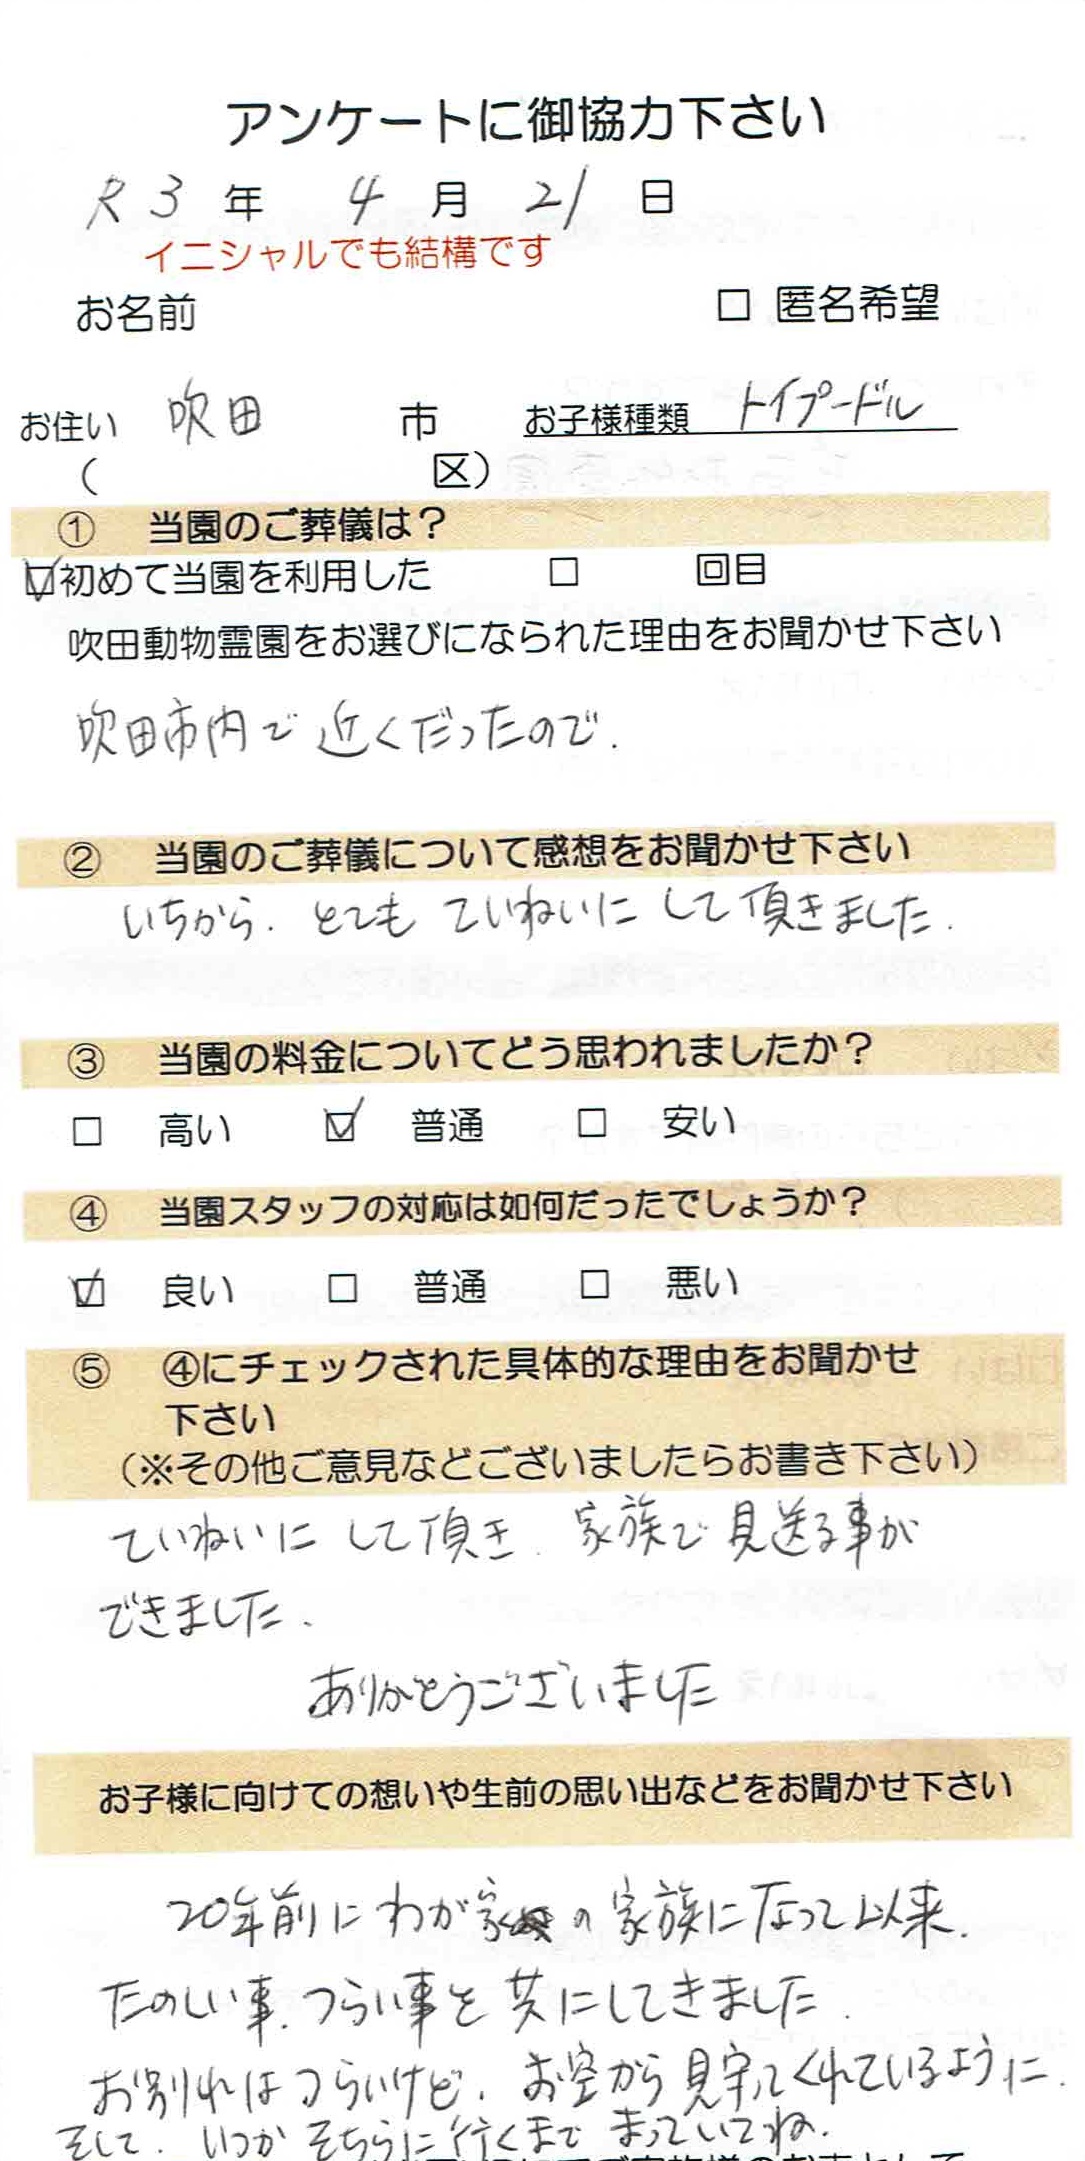 アンケートに御協力下さい
R3年 4月 21日
イニシャルでも結構です
お名前 □ 匿名希望
お住い 吹田 市 お子様種類 トイプードル
( 区)
① 当園のご葬儀は？
☑初めて当園を利用した □ 回目
吹田動物霊園をお選びになられた理由をお聞かせ下さい
吹田市内で近くだったので.
② 当園のご葬儀について感想をお聞かせ下さい
いちから. とても ていねいに して頂きました.
③ 当園の料金についてどう思われましたか？
□ 高い ☑ 普通 □ 安い
④ 当園スタッフの対応は如何だったでしょうか？
☑ 良い □ 普通 □ 悪い
⑤ ④にチェックされた具体的な理由をお聞かせ
下さい
（※その他ご意見などございましたらお書き下さい）
ていねいに して頂き. 家族で見送る事が
できました.
ありがとうございました
お子様に向けての想いや生前の思い出などをお聞かせ下さい
20年前に わが家の 家族になって以来.
たのしい事. つらい事を 共にしてきました.
お別れは つらいけど. お空から見守ってくれているように.
そして. いつか そちらに行くまで まっていてね.